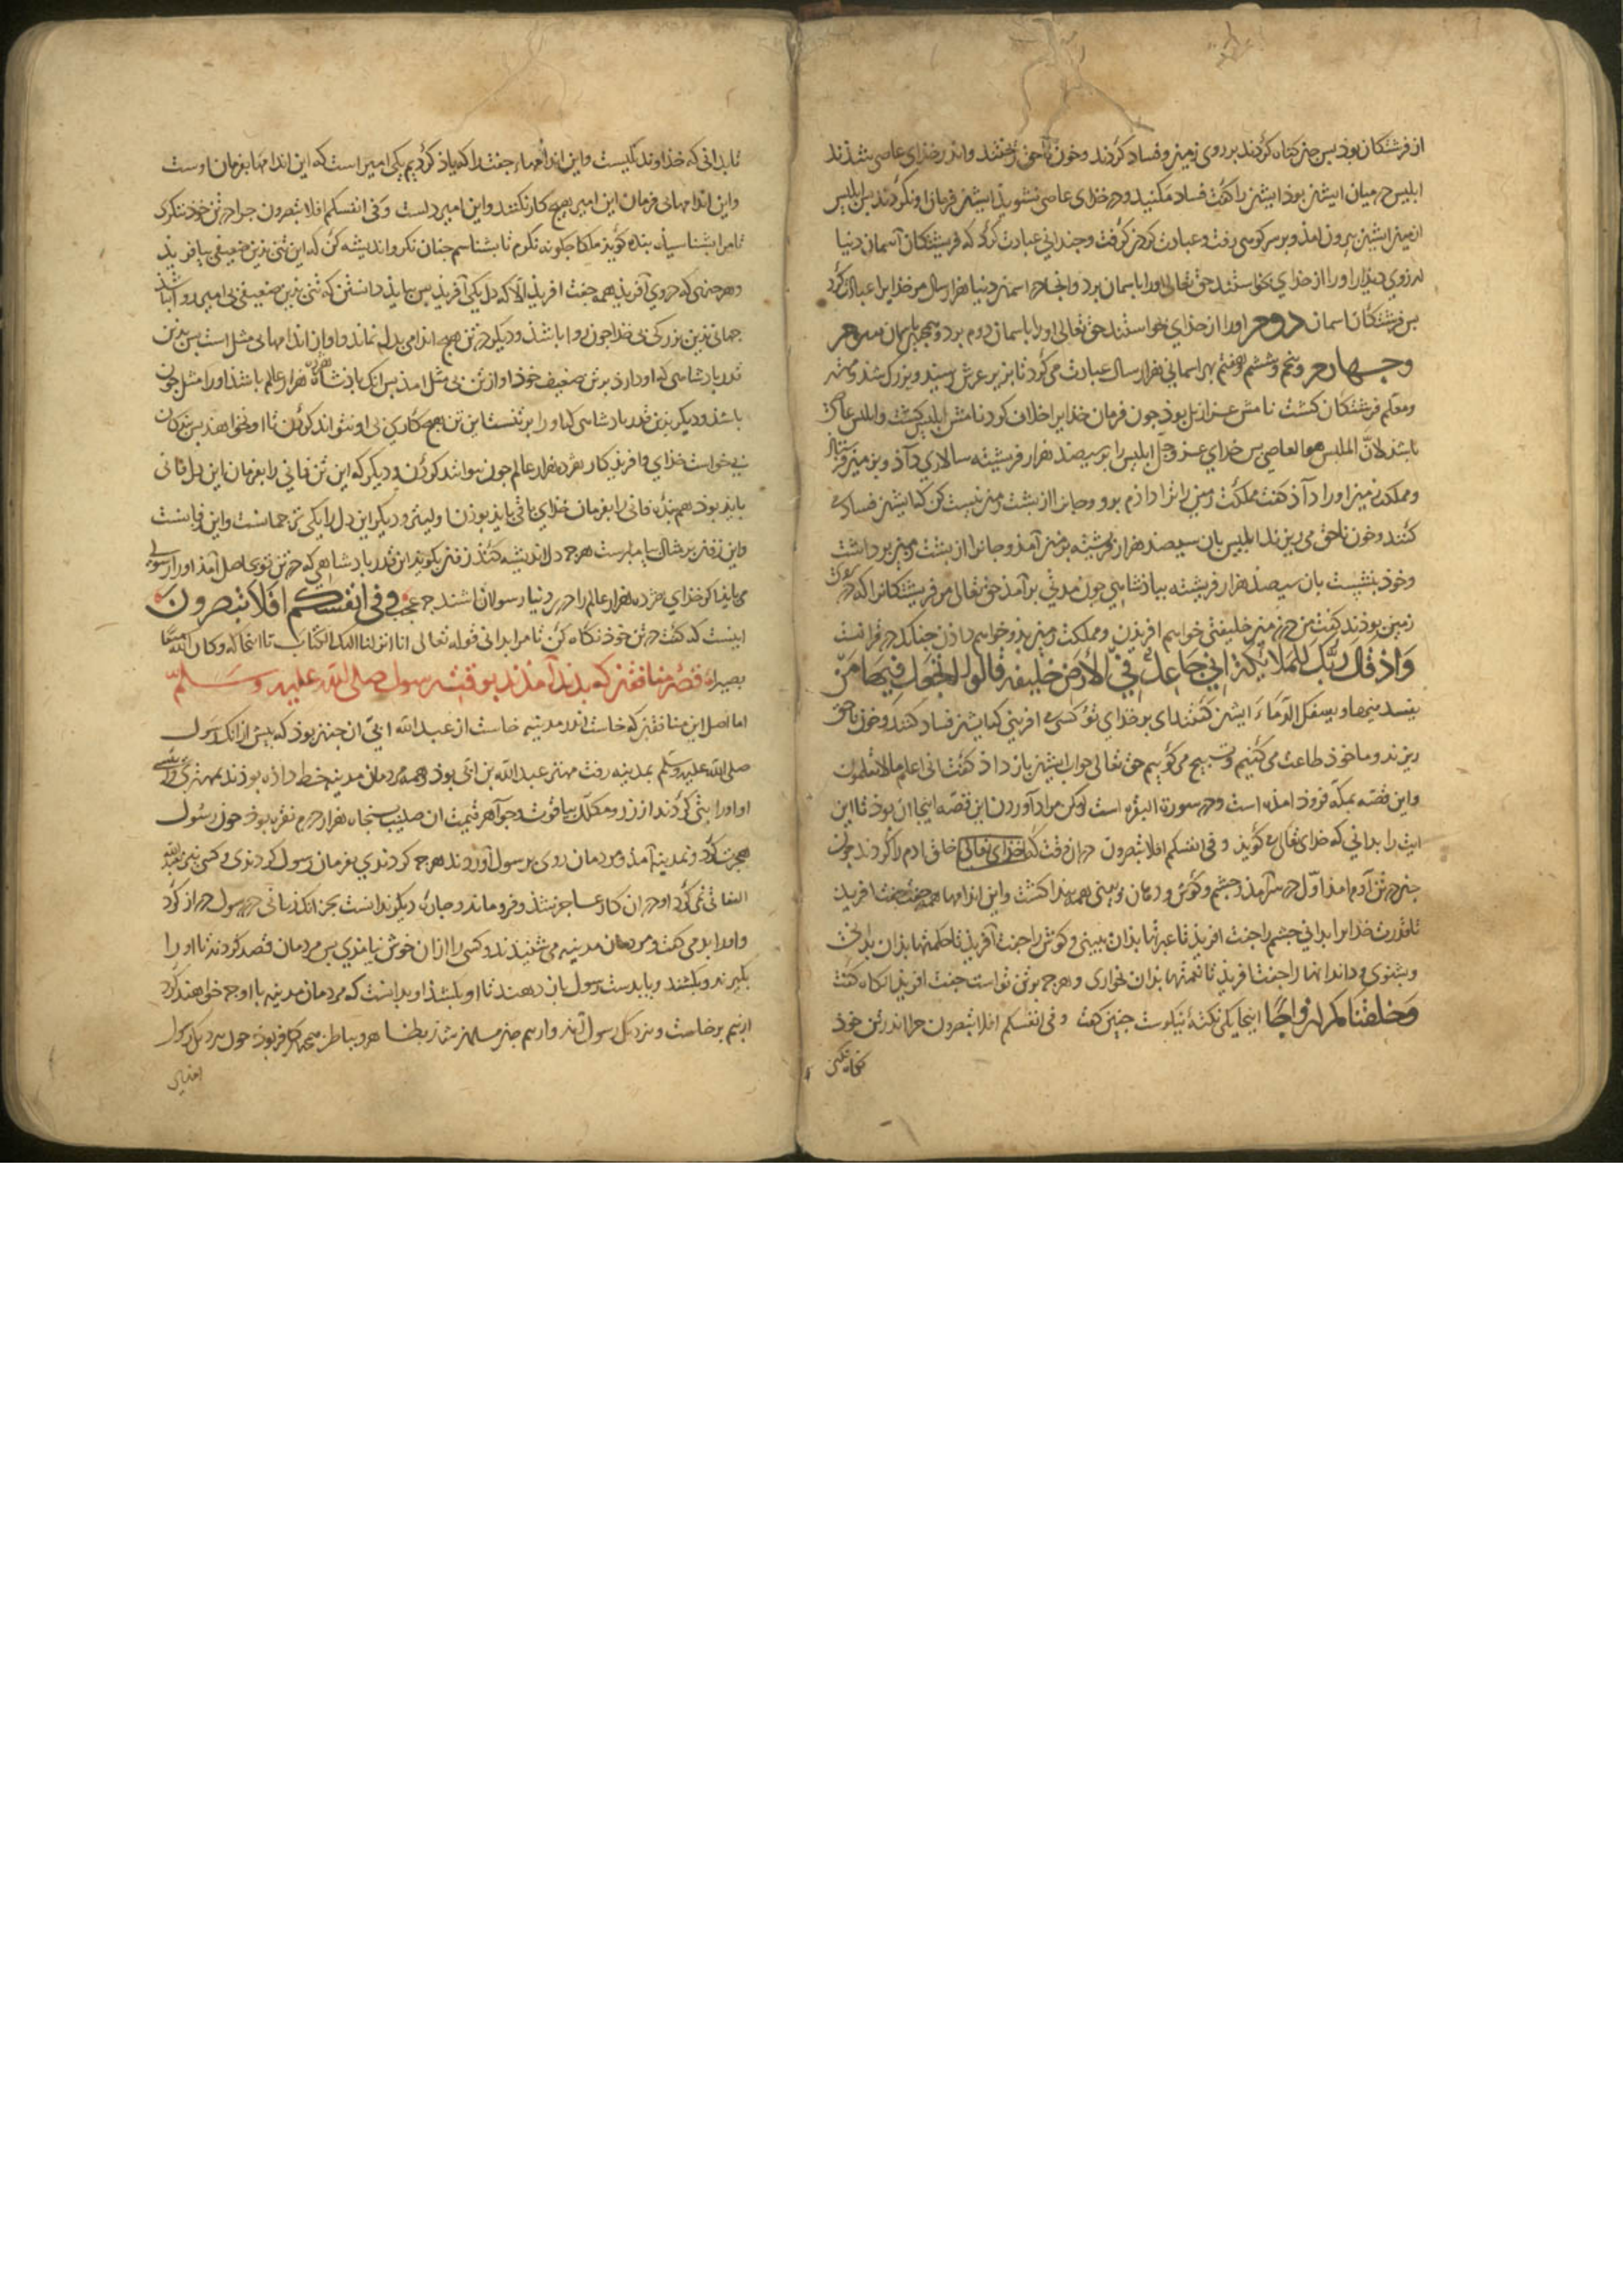 از فرشتگان بود بس جن گناه کردند بر روی زمین و فساد کردند و خون ناحق ریختند و اندر خذای عاصی شذند
ابلیس در میان ایشن بوذ ایشن را کفت فساد مکنید و در خذای عاصی نشوید ایشن فرمان او نکردند بس ابلیس
از میان ایشن بیرون امذ و بر سر کوهی رفت و عبادت کردن کرفت و جندانی عبادت کرد که فریشتکان آسمان دنیا
او را از خذای بخواستند حق تعالی او را باسمان برد و انجا در اسمان دنیا هزار سال مر خذایرا عبادت کرد
بس فرشتکان اسمان دوم او را از خذای بخواستند حق تعالی او را باسمان دوم برد و همجنین باسمان سوم
و چهارم و پنجم و ششم و هفتم بهر اسمانی هزار سال عبادت می کرد تا بزیر عرش رسید و بزرک شذ و مهتر
و معلم فرشتکان کشت نامش عزازیل بوذ جون فرمان خذایرا خلاف کرد نامش ابلیس کشت و ابلیس عاصی
باشذ لانّ الملبس هو العاصی بس خدای عز وجل ابلیس را بر سیصذ هزار فریشته سالاری داذ و بزمین فرستاد
و مملکت زمین او را داذ کفت مملکت زمین را ترا داذم برو و جانرا از بشت زمین نیست کن کایشن فساد
کنند و خون ناحق می ریزند ابلیس بان سیصذ هزار فریشته بزمین آمذ و جانرا از بشت زمین برداشت
و خوذ بنشست بان سیصذ هزار فریشته ببادشاهی جون مدتی بر آمذ حق تعالی مر فریشتکانرا که در
زمین بوذند کفت من در زمین خلیفتی خواهم افریدن و مملکت زمین بذو خواهم داذن جنانک در قرانست
وَاذ قال ربّک للملایکة انی جاعل فی الأرض خلیفة قالوا اتجعل فیها من
یفسد فیها ویسفک الدّماء ایشن کفتند ای بر خذای تو کسی افرینی کایشن فساد کنند و خون ناحق
ریزند و ما خوذ طاعت می کنیم و تسبیح می کوییم حق تعالی جواب ایشن باز داذ کفت انی اعلم مالا تعلمون
و این قصّه بمکّه فروذ امذه است و در سورة البقره است لکن مراد آوردن این قصّه اینجا ان بوذ تا این
ایت را بدانی که خدای تعالی می کویذ و فی انفسکم افلا تبصرون در ان وقت که خذای تعالی خلق ادم را کرد جون
جن در تن آدم امذ اوّل در سر آمذ و جشم و کوش و دهان و بینی همه بیذا کشت و این اندامها همه جفت جفت افریذ
تا قدرت خذایرا بدانی جشم را جفت افریذ تا عبرتها بذان ببینی و کوش را جفت آفریذ تا حکمتها بذان بدانی
و بشنوی و دندانها را جفت افریذ تا نعمتها بذان بخواری و هر جه بر تن تو است جفت افریذ انکاه کفت
وخلقناکم ازواجًا اینجا یکی نکته نیکوست جنین کفت و فی انفسکم افلا تبصرون جرا اندر تن خوذ
نکاه نکنی
تا بدانی که خذاوند یکیست و این اندامهاء جفت را که یاذ کردیم یکی امیر است که این اندامها بفرمان اوست
و این اندامها بی فرمان این امیر هیچ کار نکنند و این امیر دلست و فی انفسکم افلا تبصرون جرا در تن خوذ ننکری
تا مرا بشناسی بنده کویذ ملکا جکونه نکرم تا بشناسم جنان نکر و اندیشه کن که این تنی بذین ضعیفی بیافریذ
و هر جیزی که در وی آفریذ همه جفت افریذ الّا که دل یکی آفریذ بس ببایذ دانستن که تنی بذین ضعیفی بی امیر روا نباشذ
جهانی بذین بزرکی بی خذا جون روا باشذ و دیکر در تن هیچ اندامی بدل نماند و او از اندامها بی مثل است بس بذین
قدر باذشاهی که او دارذ بر تن ضعیف خوذ او از تن بی مثل امذ بس انک باذشاه هژده هزار عالم باشذ او را مثل جون
باشذ و دیکر بذین قدر باذشاهی که او را بر تنست این تن هیچ کاری بی او نتواند کردن تا او نخواهذ بس بندکان
بی خواست خذای و افریذکار هژده هزار عالم جون توانند کردن و دیکر که این تن فانی را بفرمان این دل فانی
بایذ بوذ هم بنده فانی را بفرمان خذای باقی بایذ بوذن و دیکر این دل را یکی ترجمانست و این زفانست
و این زفن بر مثال پیامبرست هر جه دل اندیشه کند زفن بکویذ این قدر باذشاهی که در تن توی اصل آمذ او را رسولی
می بایذ کو خذای هژده هزار عالم را در دنیا رسولان باشند جه عجب و فی انفسکم افلا تبصرون
اینست که کفت در تن خوذ نکاه کن تا مرا بدانی قوله تعالی انا انزلنا الیک الکتاب تا انجا که و کان الله سمیعا
بصیرا قصّهٔ منافقن که بدید آمذند بوقت رسول صلی الله علیه وسلّم
اما اصل این منافقن که خاست اندر مدینه خاست از عبد الله ابی ان جنن بوذ که بیش از انک رسول
صلی الله علیه وسلّم بمدینه رفت مهتر عبد الله بن ابی بوذ و همه مردمان مدینه خط داذه بوذند بمهتری
او و او را بتی کردند از زر و مکلّل بیاقوت و جواهر قیمت ان صلیب بنجاه هزار درم نقره بوذ جون رسول
هجرت کرد و بمدینه آمذ و مردمان روی بر رسول آوردند هر جه کردندی بفرمان رسول کردندی و کسی بعبد الله
التفاتی نمی کرد او در ان کار عاجز شذ و فرو ماند و جاره دیکر ندانست بجز انک زبانی در رسول دراز کرد
و او را بد می کفت و مردمان مدینه می شنیذند و کسی را از ان خوش نیامذی بس مردمان قصد کردند تا او را
بکیرند و بکشند و یا بدست رسول باز دهند تا او بکشذ او بدانست که مردمان مدینه با او جه خواهند کرد
از بیم برخاست و نزدیک رسول آمذ و از بیم جن مسلمان شذ بظاهر و بباطن همجنان کافر بوذ جون بنزدیک رسول